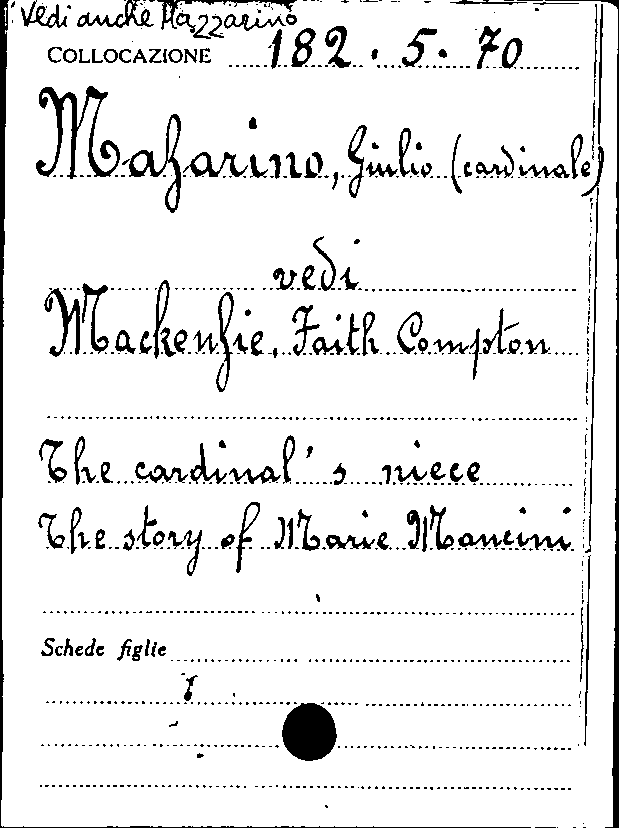 Vedi anche Mazzarino
COLLOCAZIONE 182. 5. 70
Mazarino, Giulio (cardinale)
vedi
Mackenzie, Faith Compton
The cardinal's niece
The story of Marie Mancini
Schede figlie